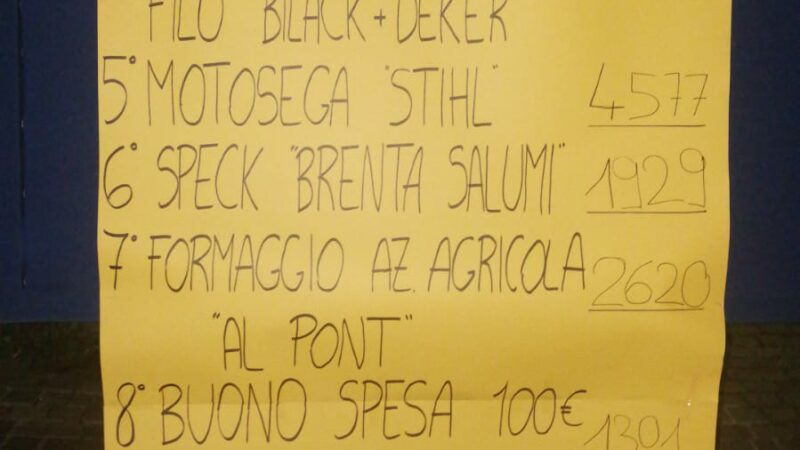 FILO BLACK+DEKER
5° MOTOSEGA "STIHL" 4577
6° SPECK "BRENTA SALUMI" 1929
7° FORMAGGIO AZ. AGRICOLA 2620
"AL PONT"
8° BUONO SPESA 100€ 1301